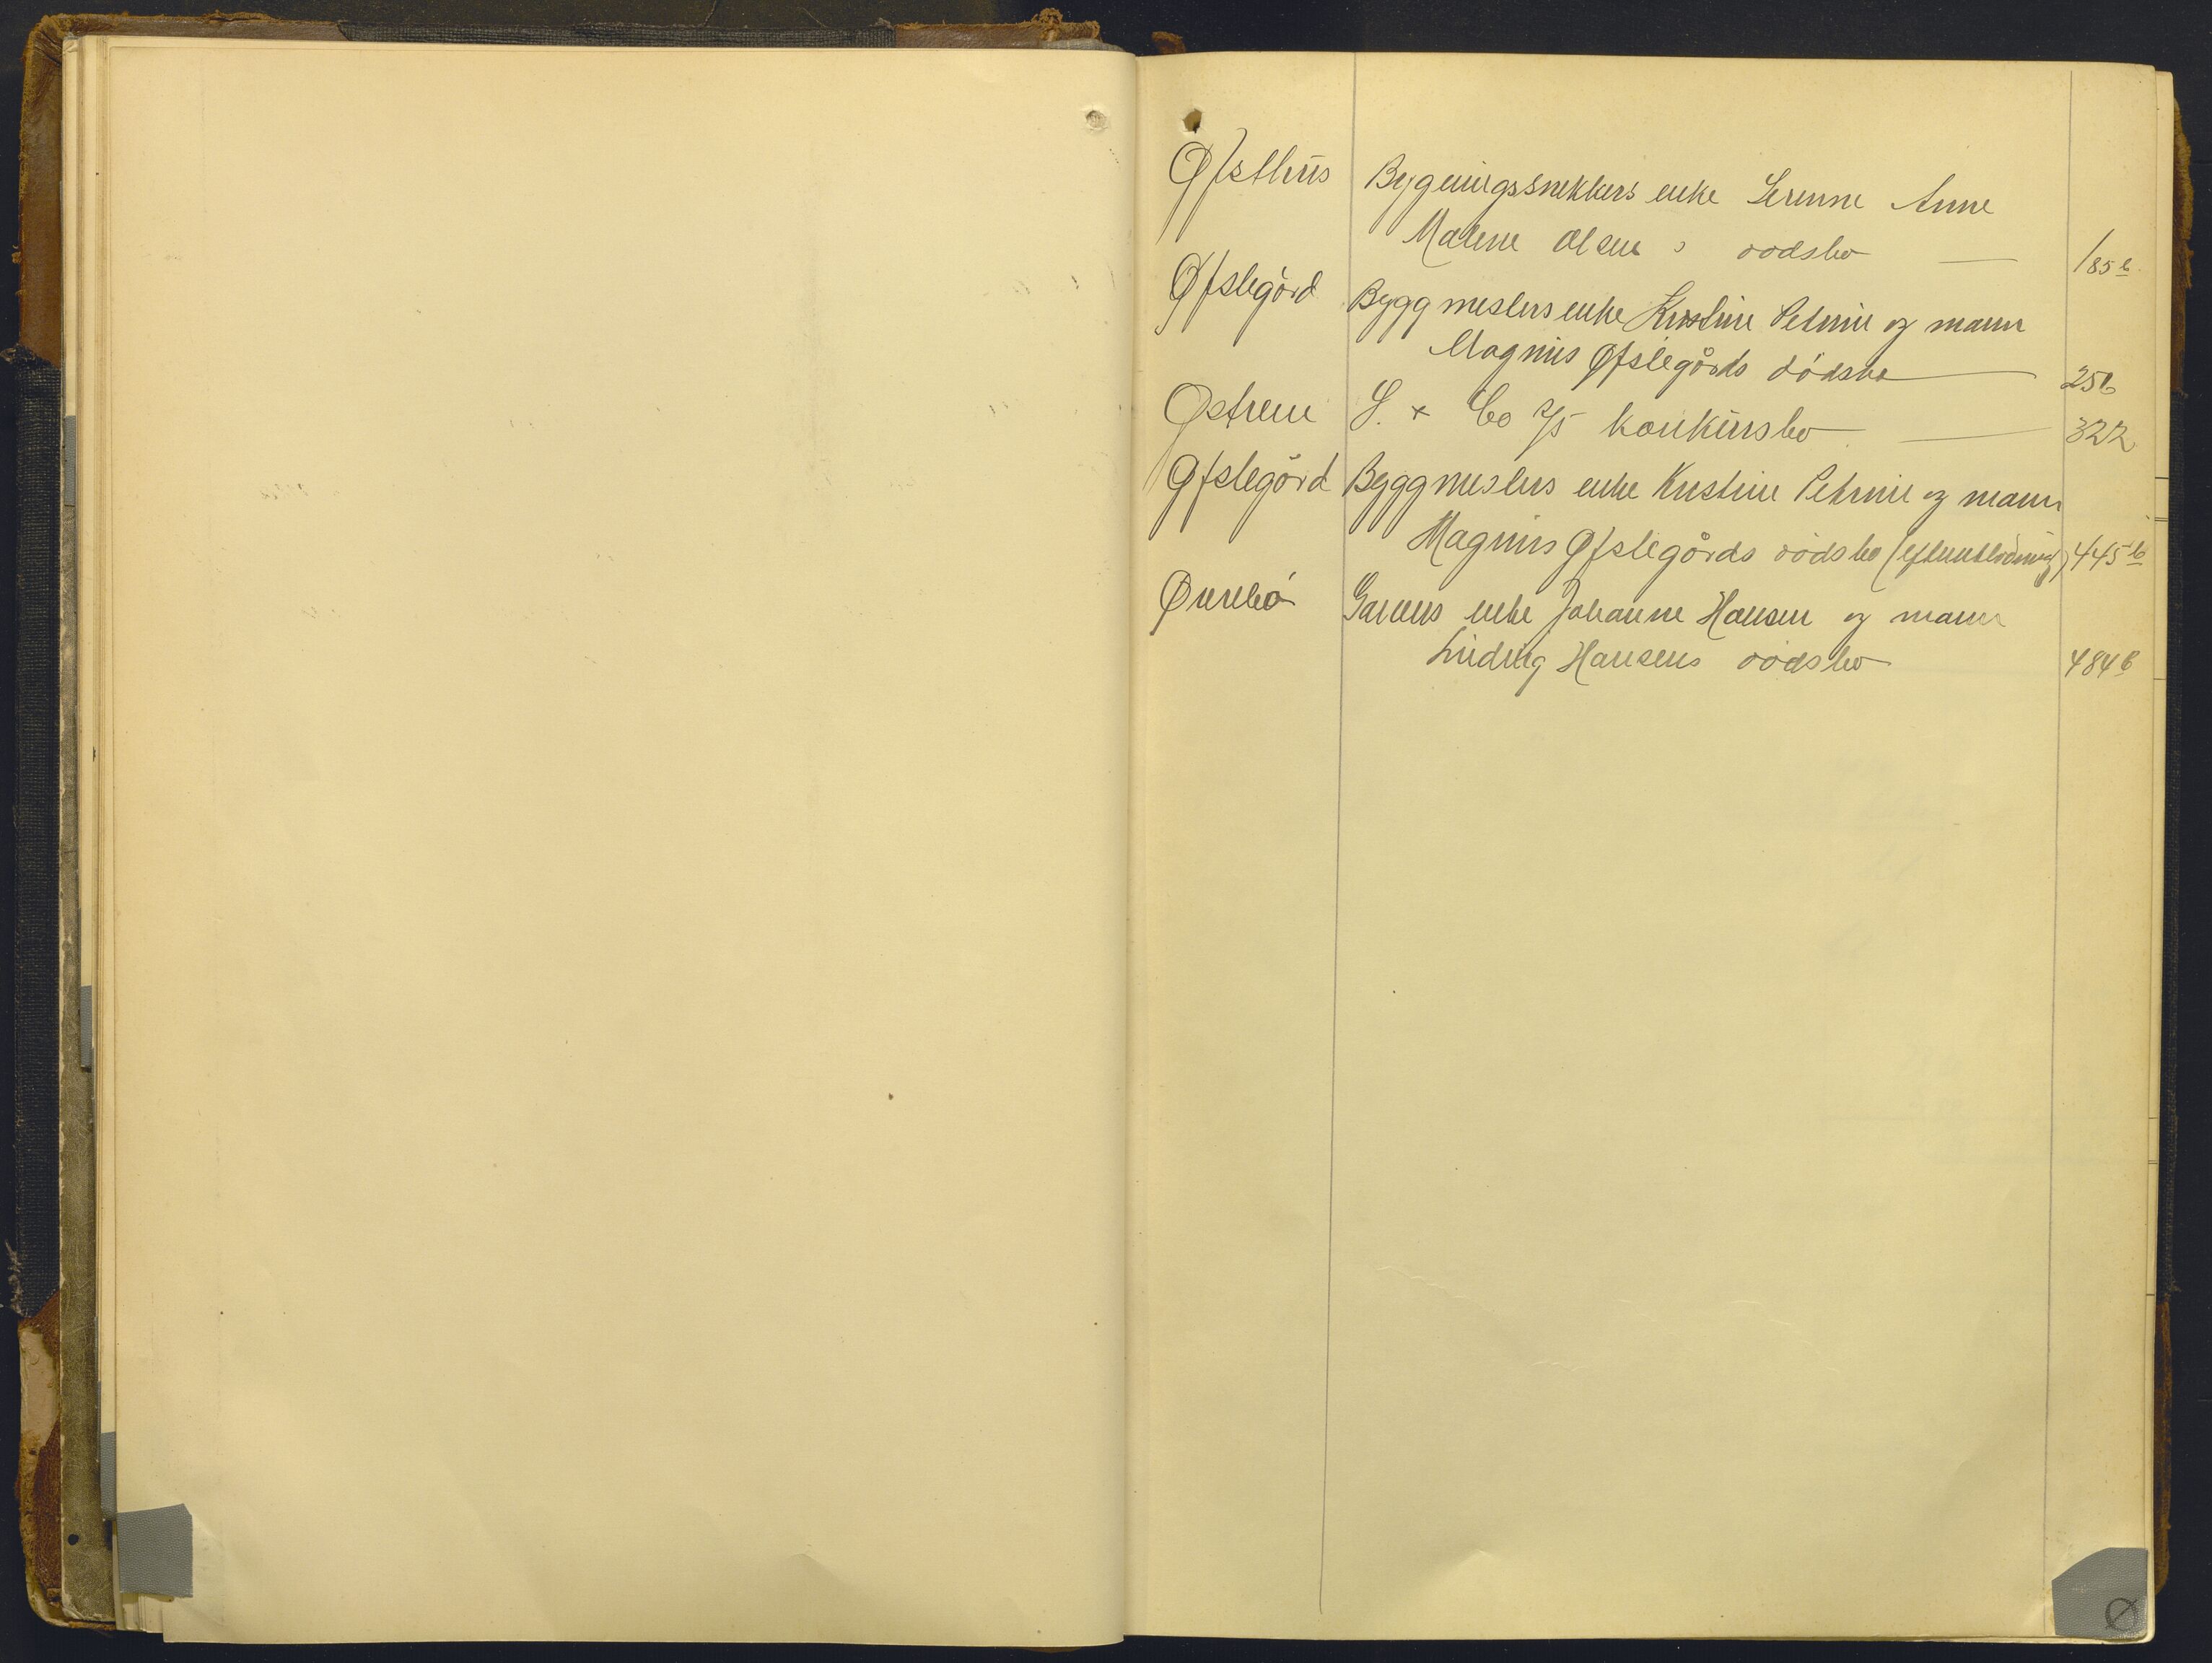 Øfsthus Bygningssnekkers enke Serinne Anne
Malene Olsens dødsbo — 185 b
Øfstegård Byggmesters enke Kristine Petrine og mann
Magnus Øfstegårds dødsbo — 256
Østrem S. + Co A/S konkursbo — 322
Øfstegård Byggmesters enke Kristine Petrine og mann
Magnus Øfstegårds dødsbo (efterutlodning) 445 b
Øvrebø enke Johanne Hansen og mann
Ludvig Hansens dødsbo 484 b
Ø